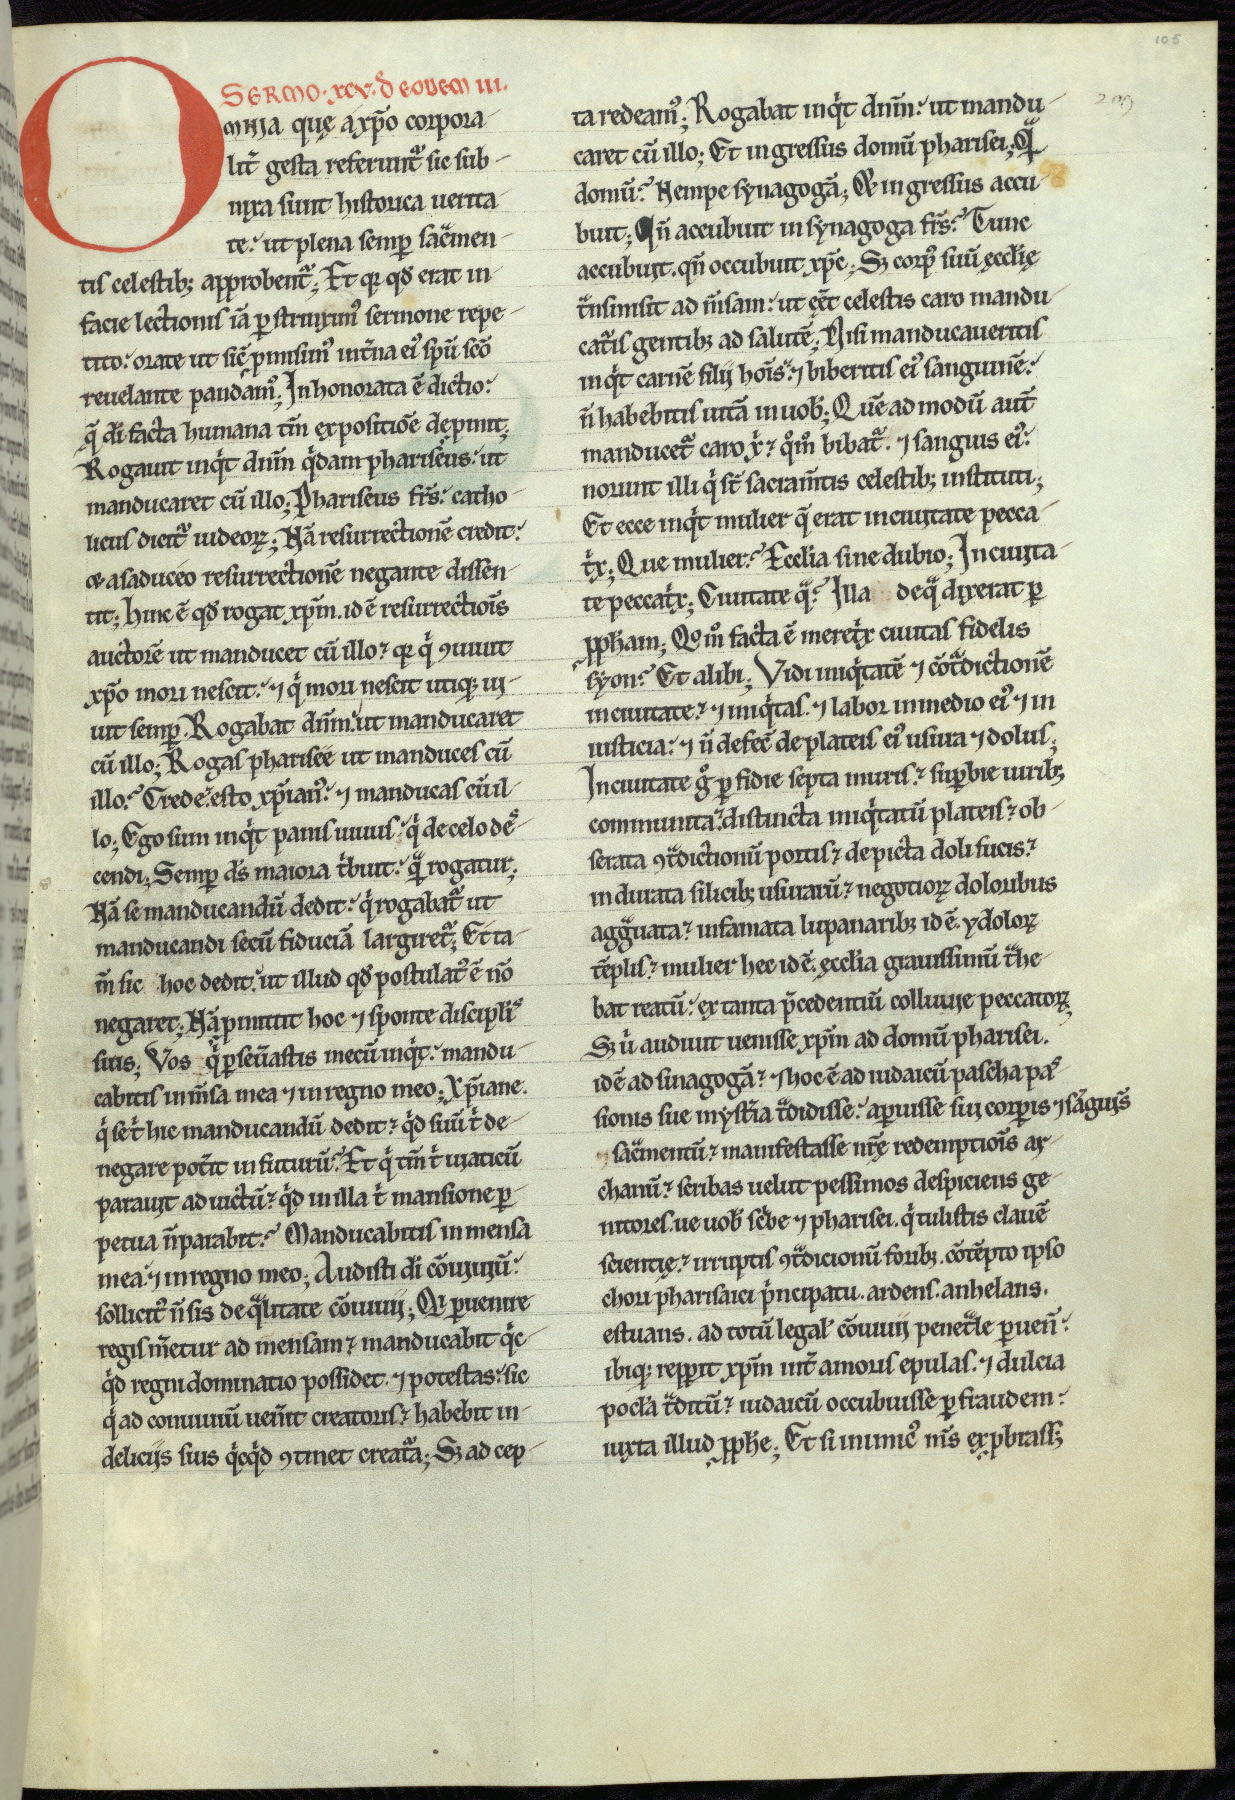 105
209
SERMO. xcv. de eodem III.
OMNIA quę a xp̄o corpora-
lit̄ gesta referunt᷑ sic sub-
nixa sunt historica uerita
te: ut plena semp̲ sac̄men-
tis celestib; approbent᷑; Et qr̄ qd̄ erat in-
facie lectionis iā p̲strinxim᷒ sermone repe-
tito: orate ut sic̄ p̲misim᷒ int̄na ei᷒ sp̄u sc̄o
reuelante pandam᷒; Inhonorata ē dictio:
q̄ di facta humana tm̄ expositiōe depinit;
Rogauit inqͥt dn̄m qͥdam phariseus: ut
manducaret cū illo; Phariseus fr̄s: catho-
licus dicit᷑ iudeoꝝ; Nā resurrectionē credit:
& a saduceo resurrectionē negante dissen-
tit; hinc ē qd̄ rogat xp̄m. id ē resurrectiōis
auctorē ut manducet cū illo: qr̄ qͥ ꝯuiuit
xp̄o mori nescit: ⁊ qͥ mori nescit utiq; ui-
uit semp̲. Rogabat dn̄m: ut manducaret
cū illo; Rogas pharisee ut manduces cū
illo: Crede: esto xp̄ian᷒: ⁊ manducas cū il-
lo; Ego sum inqͥt panis uiuus: qͥ de celo des-
cendi; Semp̲ ds̄ maiora tͥbuit: qͣ̄ rogatur;
Nā se manducandū dedit: qͥ rogabat᷑ ut
manducandi secū fiduciā largiret᷑; Et ta-
m̄ sic hoc dedit: ut illud qd̄ postulat᷒ ē nō
negaret; Nā p̲mittit hoc ⁊ sponte discipl̄is
suis; Vos qͥ p̲seūastis mecū inqͥt: mandu-
cabitis in m̄sa mea ⁊ in regno meo; Xp̄iane.
qͥ se tͥ hic manducandū dedit: qͥd suū tͥ de-
negare pot̄it in futurū: Et qͥ tm̄ tͥ uiaticū
parauit ad uictū: qͥd in illa tͥ mansione p̲-
petua n̄ parabit: Manducabitis in mensa
mea: ⁊ in regno meo; Audisti di cōuiuiū:
sollicit᷒ n̄ sis de qͣlitate cōuiuij; Qͥ p̲uenire
regis m̄etur ad mensam: manducabit qͥc-
qͥd regni dominatio possidet. ⁊ potestas: sic
qͥ ad conuiuiū uen̄it creatoris: habebit in-
delicijs suis qͥcqͥd ꝯtinet creatͣa; Sꝫ ad cep-
ta redeam᷒; Rogabat inqͥt dn̄m: ut mandu-
caret cū illo; Et ingressus domū pharisei; Qͣ
domū: Nempe synagogā; & ingressus accu-
buit; Qn̄ accubuit in synagoga fr̄s: Tunc
accubuit. qn̄ occubuit xp̄c; Sꝫ corp᷒ suū ęccl̄ię
tͣnsmisit ad m̄sam: ut eēt celestis caro mandu-
catͣis gentib; ad salutē; Nisi manducaueritis
inqͥt carnē filij hoīs: ⁊ biberitis ei᷒ sanguinē:
n̄ habebitis uitā in uob̄; Quē ad modū aut̄
manducet᷑ caro xͥ: qͦm̊ bibat᷑. ⁊ sanguis ei᷒:
norunt illi qͥ st̄ sacram̄tis celestib; instituti;
Et ecce inqͥt mulier q̄ erat in ciuitate pecca-
tͥx; Que mulier: Eccl̄ia sine dubio; In ciuita-
te peccatͥx; Ciuitate qͣ: Illa de qͣ dixerat p̲
pp̄ham; Qͦm̊ facta ē meretͥx ciuitas fidelis
syon: Et alibi; Vidi iniqͥtatē ⁊ cōtͣdictionē
in ciuitate: ⁊ iniqͥtas. ⁊ labor in medio ei᷒ ⁊ in
iusticia: ⁊ n̄ defec̄ de plateis ei᷒ usura ⁊ dolus;
In ciuitate gͦ p̲fidie septa muris: sup̲bie turib;
communita: distincta iniqͥtatū plateis: ob-
serata ꝯtͣdictionū portis: depicta doli fucis:
indurata silicib; usurarū: negotioꝝ doloribus
aggͣuata: infamata lupanarib; id ē. ydoloꝝ
tēplis: mulier hec id ē. ęccl̄ia grauissimū tͣhe-
bat reatū: ex tanta p̄cedentiū colluuie peccatoꝝ.
Sꝫ uͥ audiuit uenisse xp̄m ad domū pharisei.
id ē ad sinagogā: ⁊ hoc ē ad iudaicū pascha pas-
sionis sue myst̄ia tͣdidisse: aperuisse sui corp̲is ⁊ sāguinis
sac̄mentū: manifestasse nr̄ę redemptiōis ar-
chanū: scribas uelut pessimos despiciens ge-
nitores. ue uob̄ sc̄be ⁊ pharisei. qͥ tulistis clauē
scientię: irruptis ꝯtͣdicionū forib;. cōtēpto ipso
chori pharisaici pͥncipatu. ardens. anhelans.
estuans. ad totū legal̄ cōuiuij penetͣle p̲uen̄:
ibiq; repp̲it xp̄m int̄ amoris epulas. ⁊ dulcia
pocl̄a tͣditū: iudaicū occubuisse p̲ fraudem:
iuxta illud pp̄he; Et si inimic᷒ m̄s exp̲brass;